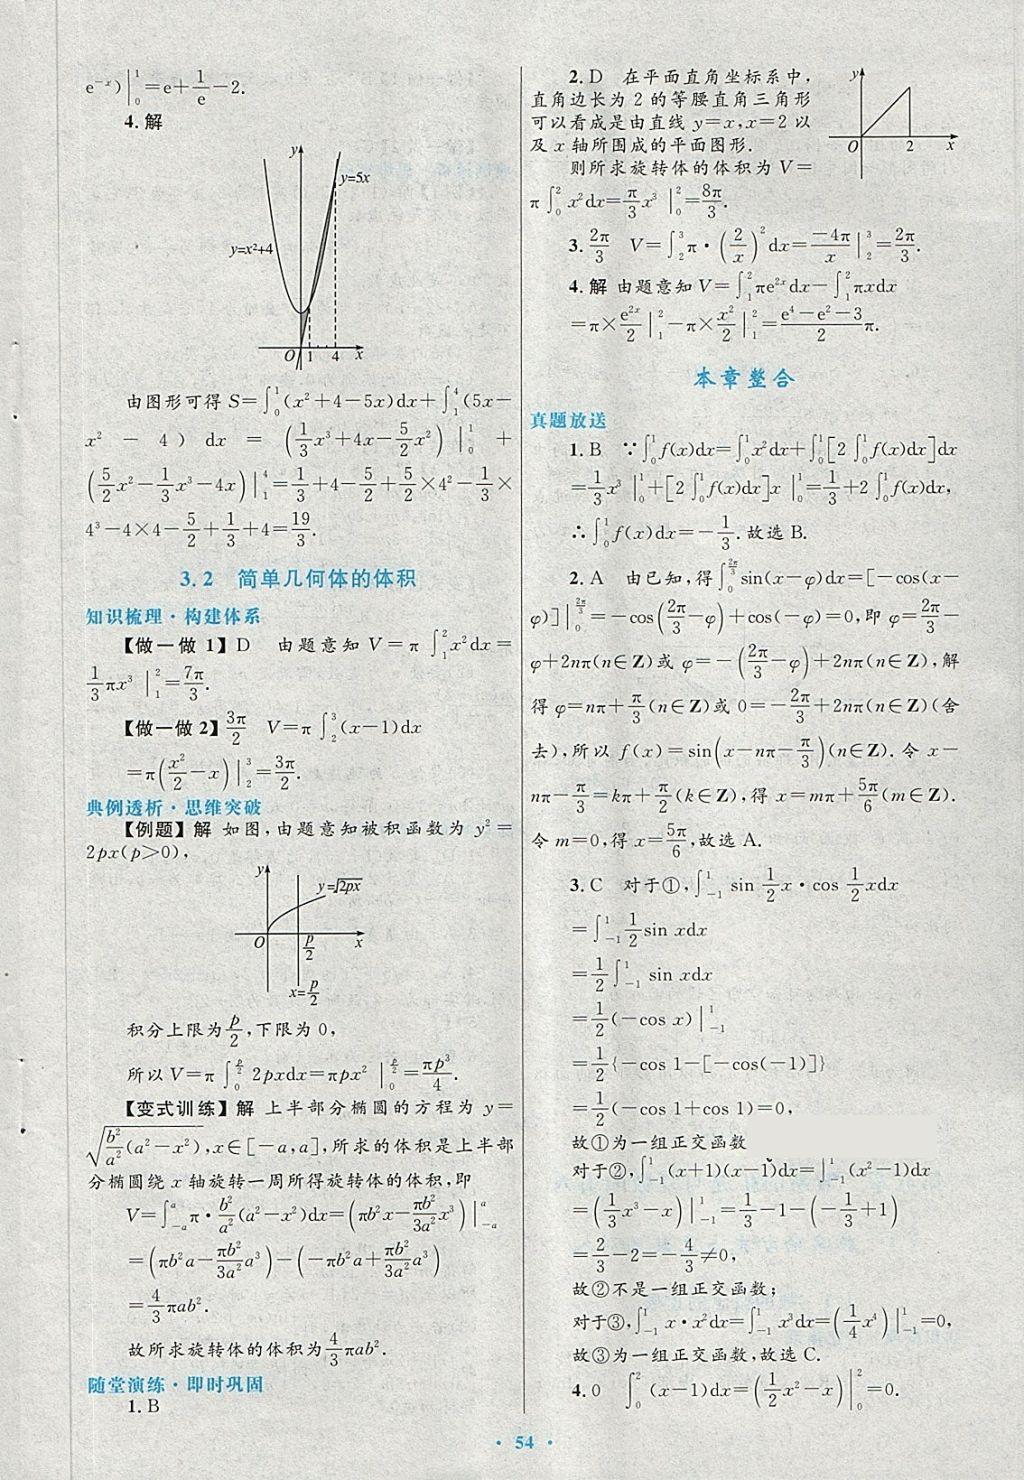 e⁻ˣ)|₀¹=e+1/e−2.
4.解
y
y=5x
y=x²+4
O 1 4 x
由图形可得 S=∫₀¹(x²+4−5x)dx+∫₁⁴(5x−
x² − 4) dx = (1/3x³+4x−5/2x²)|₀¹ +
(5/2x²−1/3x³−4x)|₁⁴=1/3+4−5/2+5/2×4²−1/3×
4³−4×4−5/2+1/3+4=19/3.
3.2 简单几何体的体积
知识梳理·构建体系
【做一做 1】D 由题意知 V=π∫₁²x²dx=
1/3πx³|₁²=7π/3.
【做一做 2】3π/2 V=π∫₂³(x−1)dx
=π(x²/2−x)|₂³=3π/2.
典例透析·思维突破
【例题】解 如图,由题意知被积函数为 y²=
2px(p>0),
y
y=√2px
O p/2 x
x=p/2
积分上限为p/2,下限为 0,
所以 V=π∫₀^(p/2) 2pxdx=πpx²|₀^(p/2)=πp³/4.
【变式训练】解 上半部分椭圆的方程为 y=
√(b²/a²(a²−x²)),x∈[−a,a],所求的体积是上半部
分椭圆绕 x 轴旋转一周所得旋转体的体积,即
V=∫₋ₐᵃπ·b²/a²(a²−x²)dx=(πb²x−πb²/3a²x³)|₋ₐᵃ
=(πb²a−πb²/3a²a³)−(−πb²a+πb²/3a²a³)
=4/3πab².
故所求旋转体的体积为4/3πab².
随堂演练·即时巩固
1.B
2.D 在平面直角坐标系中,
直角边长为 2 的等腰直角三角形
可以看成是由直线 y=x,x=2 以
及 x 轴所围成的平面图形.
y
O 2 x
则所求旋转体的体积为 V=
π∫₀²x²dx=π/3x³|₀²=8π/3.
3.2π/3 V=∫₂³π·(2/x)²dx=−4π/x|₂³=2π/3.
4.解 由题意知 V=∫₁²πe²ˣdx−∫₁²πxdx
=π×e²ˣ/2|₁²−π×x²/2|₁²=(e⁴−e²−3)/2π.
本章整合
真题放送
1.B ∵∫₀¹f(x)dx=∫₀¹x²dx+∫₀¹[2∫₀¹f(x)dx]dx
=1/3x³|₀¹+[2∫₀¹f(x)dx]x|₀¹=1/3+2∫₀¹f(x)dx,
∴∫₀¹f(x)dx=−1/3.故选 B.
2.A 由已知,得∫₀^(2π/3)sin(x−φ)dx=[−cos(x−
φ)]|₀^(2π/3)=−cos(2π/3−φ)+cos(−φ)=0,即 φ=2π/3−
φ+2nπ(n∈Z)或 φ=−(2π/3−φ)+2nπ(n∈Z),解
得 φ=nπ+π/3(n∈Z)或 0=−2π/3+2nπ(n∈Z)(舍
去),所以 f(x)=sin(x−nπ−π/3)(n∈Z).令 x−
nπ−π/3=kπ+π/2(k∈Z),得 x=mπ+5π/6(m∈Z).
令 m=0,得 x=5π/6,故选 A.
3.C 对于①,∫₋₁¹ sin 1/2x·cos 1/2xdx
=∫₋₁¹1/2sin xdx
=1/2∫₋₁¹ sin xdx
=1/2(−cos x)|₋₁¹
=1/2{−cos 1−[−cos(−1)]}
=1/2(−cos 1+cos 1)=0,
故①为一组正交函数
对于②,∫₋₁¹(x+1)(x−1)dx=∫₋₁¹(x²−1)dx
=(1/3x³−x)|₋₁¹=1/3−1−(−1/3+1)
=2/3−2=−4/3≠0,
故②不是一组正交函数;
对于③,∫₋₁¹x·x²dx=∫₋₁¹x³dx=(1/4x⁴)|₋₁¹=0,
故③为一组正交函数,故选 C.
4.0 ∫₀²(x−1)dx=(1/2x²−x)|₀²=0.
· 54 ·